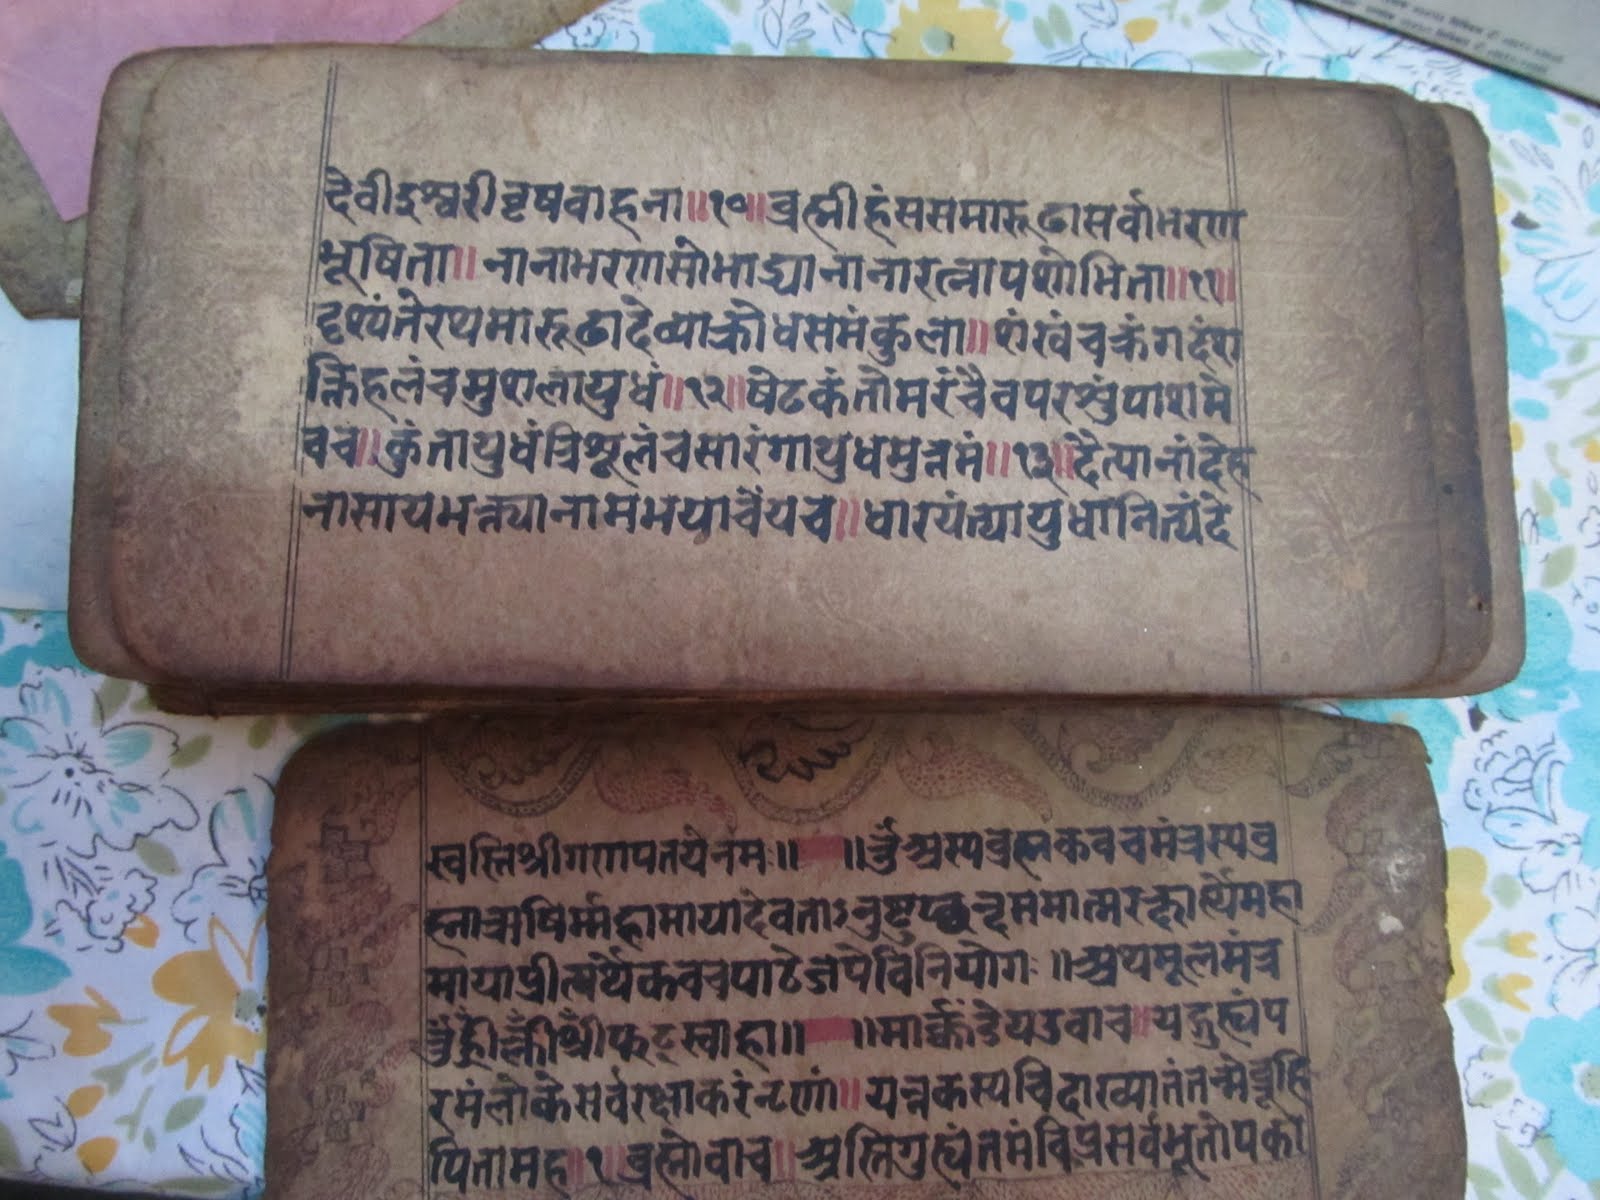 देवीइश्वरीवृषवाहना॥१०॥व्रह्मीहंससमारूढासर्वाभरण
भूषिता॥नानाभरणसोभाढ्यानानारत्नापशोभिता॥११॥
दृश्यंतेरथमारूढादेव्याक्रोधसमंकुला॥शंखंचक्रंगदंश
क्तिहलंचमुशलायुधं॥१२॥षेटकंतोमरंचैवपरशुंपाशमे
वच॥कुंतायुधंत्रिशूलंचसारंगायुधमुत्तमं॥१३॥दैत्यानांदेह
नासायभक्त्यानामभयाचेंयच॥धारयंत्यायुधांनित्यंदे
स्वस्तिश्रीगणपतयेनमः॥ ॥उँअस्यव्रह्मकवचमंत्रस्यव्र
ह्माऋषिर्म्महामायादेवताऽनुष्टुप्छन्दसमात्मरक्षार्थेमहा
मायाप्रीत्यर्थेकवचपाठेजपेविनियोगः॥अथमूलमंत्र
उँह्रीँक्लीँश्रीँफट्स्वाहा॥ ॥मार्कंडेयउवाच॥यद्गुह्यंप
रमंलोकेसर्वरक्षाकरंनृणां॥यन्नकस्यचिदाख्यातंतन्मेव्रूहि
पितामह॥१॥व्रह्मोवाच॥अस्तिगुह्यंतमंविप्रसर्वभूतोपका